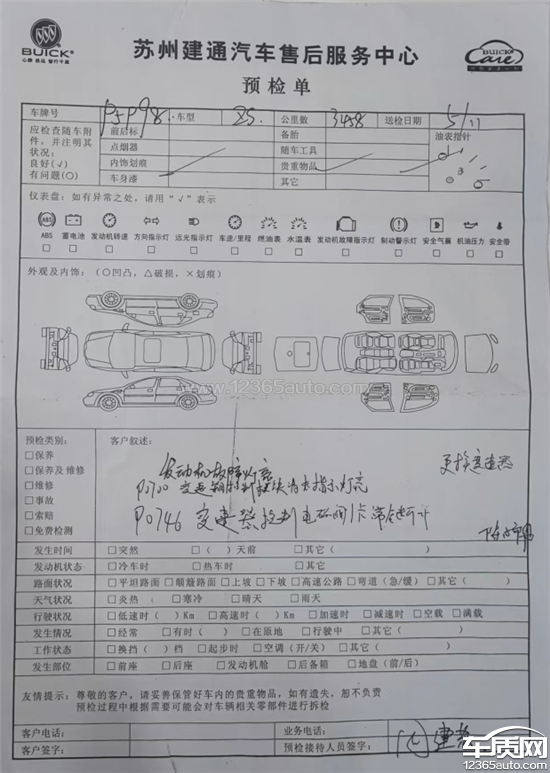 BUICK
心静 思远 智行千里
苏州建通汽车售后服务中心
BUICK Care
预检单
车牌号 P5P98 车型 25 公里数 3458 送检日期 5/11
应检查随车附件，并注明其状况：
良好(√)
有问题(○)
前后标 备胎 油表指针
点烟器 随车工具
内饰划痕 贵重物品
车身漆 其它
仪表盘：如有异常之处，请用“√”表示
ABS 蓄电池 发动机转速 方向指示灯 远光指示灯 车速/里程 燃油表 水温表 发动机故障指示灯 制动警示灯 安全气囊 机油压力 安全带
外观及内饰：(○凹凸，△破损，×划痕)
www.12365auto.com
预检类别：
□保养
□保养及维修
□维修
□事故
□索赔
□免费检测
客户叙述：
发动机故障灯亮
P0700 变速箱控制模块请求指示灯亮
P0746 变速箱控制电磁阀1卡滞在断开
更换变速器
发生时间 □突然 □( )天前 □其它( )
发动机状态 □冷车时 □热车时 □其它( )
路面状况 □平坦路面 □颠簸路面 □上坡 □下坡 □高速公路 □弯道(急/缓) □其它( )
天气状况 □炎热 □寒冷 □晴天 □雨天
行驶状况 □低速时( )Km □高速时( )Km □加速时 □减速时 □空载 □满载
发生情况 □经常 □有时( ) □在原地 □行驶中 □其它( )
工作状态 □换挡( )档 □起步时 □空调(开/关) □其它( )
发生部位 □前座 □后座 □发动机舱 □后备箱 □地盘(前/后)
友情提示：尊敬的客户，请妥善保管好车内的贵重物品，如有遗失，恕不负责
预检过程中根据需要可能会对车辆相关零部件进行拆检
客户电话： 业务电话：
客户签字： 预检接待人员签字：
车质网
12365auto.com